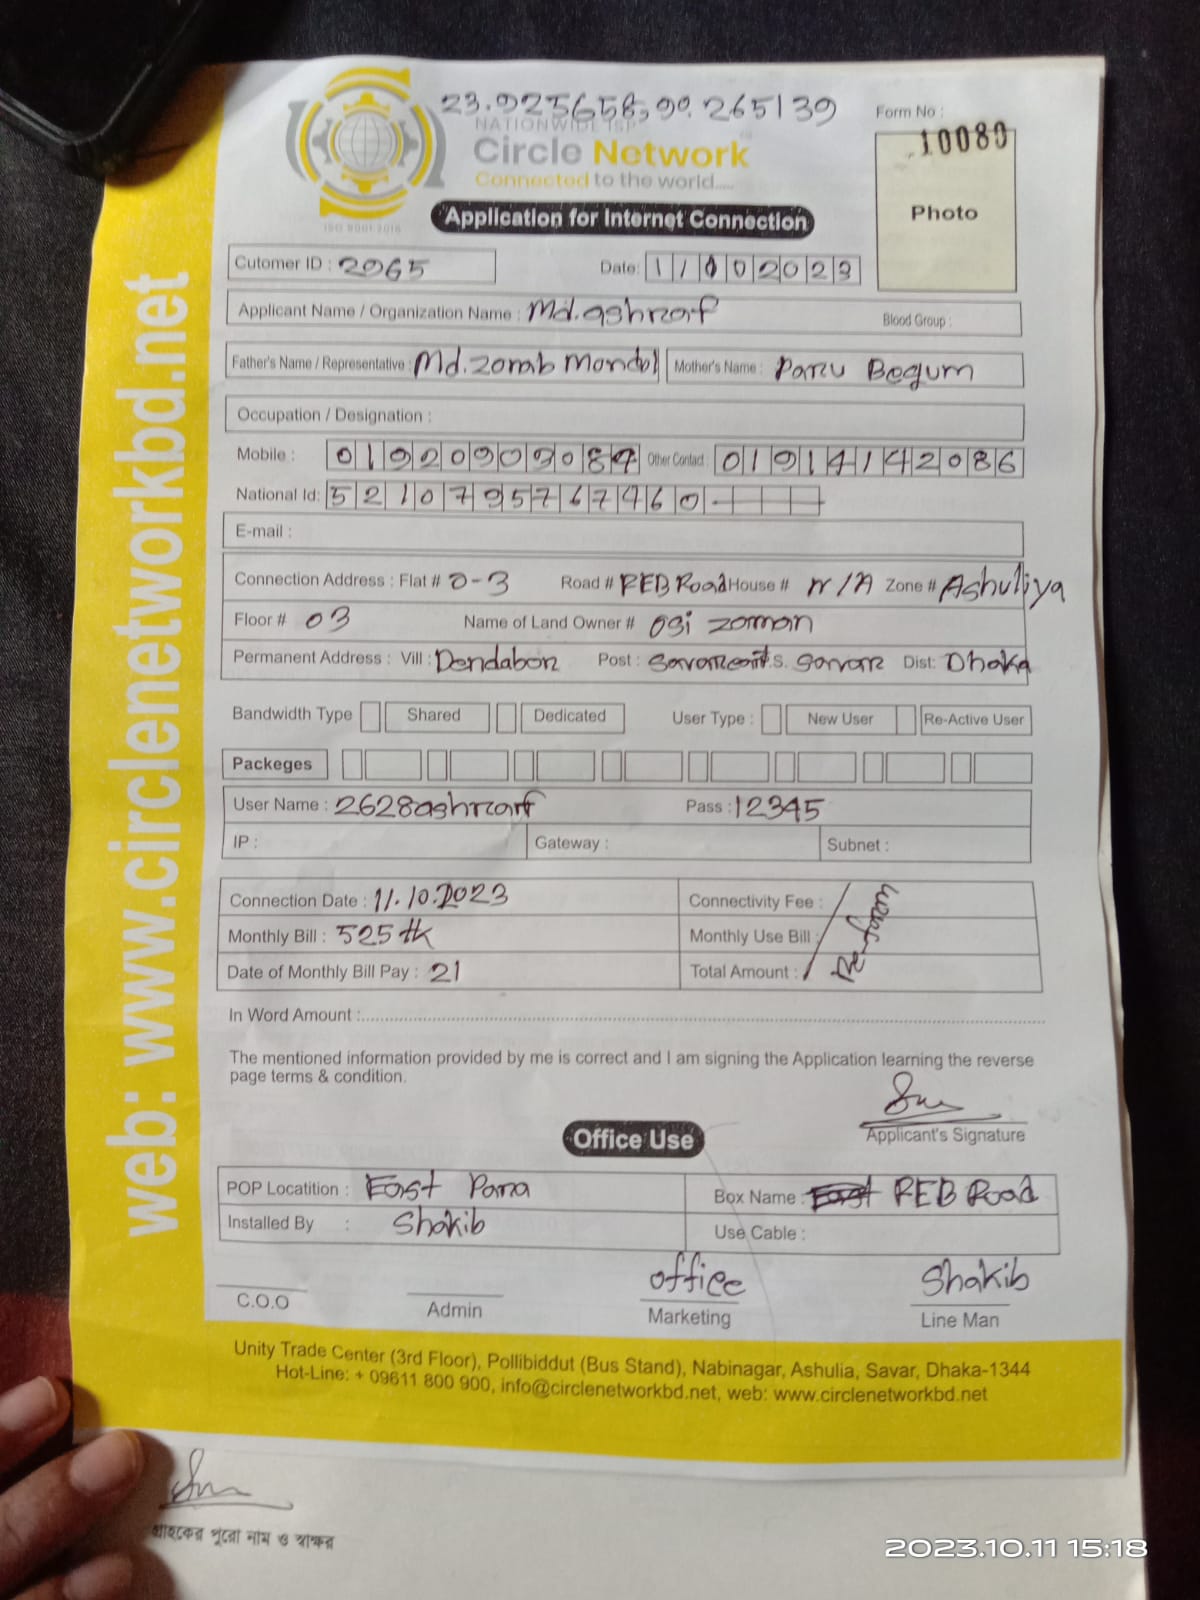 23.925658,90.265139
NATIONWIDE ISP
Circle Network
Connected to the world.....
ISO 9001:2015
Application for Internet Connection
Form No :
10080
Photo
Cutomer ID : 2065
Date: 11102023
Applicant Name / Organization Name : Md.ashraf
Blood Group :
Father's Name / Representative : Md.zorab Mondol Mother's Name : Paru Begum
Occupation / Designation :
Mobile : 01920909087 Other Contact : 01914142086
National Id: 5210795767460
E-mail :
Connection Address : Flat # D-3 Road # REB Road House # N/A Zone # Ashuliya
Floor # 03 Name of Land Owner # Ogi zaman
Permanent Address : Vill : Dendabor Post : Savarcant .S. Savar Dist: Dhaka
Bandwidth Type Shared Dedicated User Type : New User Re-Active User
Packeges
User Name : 2628ashraf Pass : 12345
IP : Gateway : Subnet :
Connection Date : 11.10.2023 Connectivity Fee :
Monthly Bill : 525 tk Monthly Use Bill :
Date of Monthly Bill Pay : 21 Total Amount :
In Word Amount :
The mentioned information provided by me is correct and I am signing the Application learning the reverse
page terms & condition.
Applicant's Signature
Office Use
POP Locatition : East Para Box Name : REB Road
Installed By : Shakib Use Cable :
office Shakib
C.O.O Admin Marketing Line Man
Unity Trade Center (3rd Floor), Pollibiddut (Bus Stand), Nabinagar, Ashulia, Savar, Dhaka-1344
Hot-Line: + 09611 800 900, info@circlenetworkbd.net, web: www.circlenetworkbd.net
web: www.circlenetworkbd.net
গ্রাহকের পুরো নাম ও স্বাক্ষর
2023.10.11 15:18